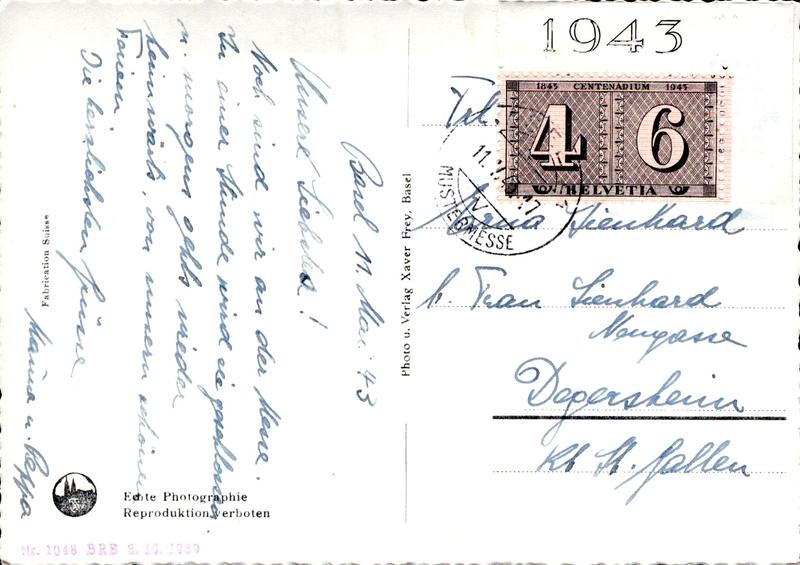 Basel 11. Mai. 43
Unsere Liebste!
Noch sind wir an der Messe.
In einer Stunde wird sie geschlossen
u. morgen gehts wieder
heimwärts, von unsern schönen
Ferien.
Die herzlichsten Grüsse
Mama u. Pappa
Fabrication Suisse
Echte Photographie
Reproduktion verboten
Nr. 1048 BRB 2.10.1939
Photo u. Verlag Xaver Frey, Basel
1943
1843 CENTENARIUM 1943
4 6
HELVETIA
11.V
17
MUSTERMESSE
Frl.
Erna Lienhard
b. Frau Lienhard
Neugasse
Degersheim
Kt St. Gallen